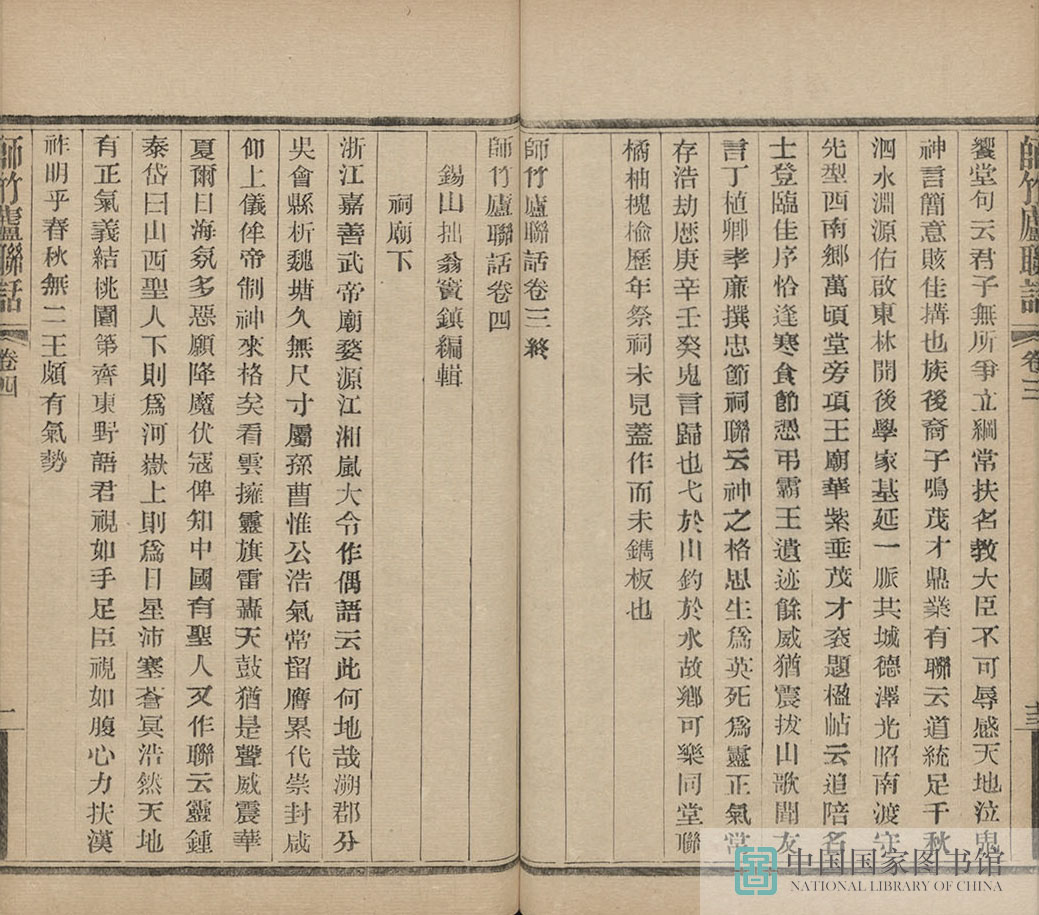 師竹廬聯話
卷三
十三
饗堂句云君子無所爭立綱常扶名教大臣不可辱感天地泣鬼
神言簡意賅佳搆也族後裔子鳴茂才鼎業有聯云道統足千秋
泗水淵源佑啟東林開後學家基延一脈共城德澤光昭南渡守
先型西南鄉萬頃堂旁項王廟華紫垂茂才衮題楹帖云追陪名
士登臨佳序恰逢寒食節慿弔霸王遺迹餘威猶震拔山歌聞友
言丁植卿孝亷撰忠節祠聯云神之格思生爲英死爲靈正氣常
存浩劫歴庚辛壬癸鬼言歸也弋於山釣於水故鄉可樂同堂聯
橘柚槐楡歴年祭祠未見蓋作而未鐫板也
師竹廬聯話卷三終
師竹廬聯話卷四
錫山拙翁竇鎮編輯
祠廟下
浙江嘉善武帝廟婺源江湘嵐大令作偶語云此何地哉溯郡分
吳會縣析魏塘久無尺寸屬孫曹惟公浩氣常留膺累代崇封咸
仰上儀侔帝制神來格矣看雲擁靈旗雷轟天鼓猶是聲威震華
夏爾日海氛多惡願降魔伏冦俾知中國有聖人又作聯云靈鍾
泰岱曰山西聖人下則爲河嶽上則爲日星沛塞蒼冥浩然天地
有正氣義結桃園第齊東野語君視如手足臣視如腹心力扶漢
祚明乎春秋無二王頗有氣勢
師竹廬聯話
卷四
一
中国国家图书馆
NATIONAL LIBRARY OF CHINA